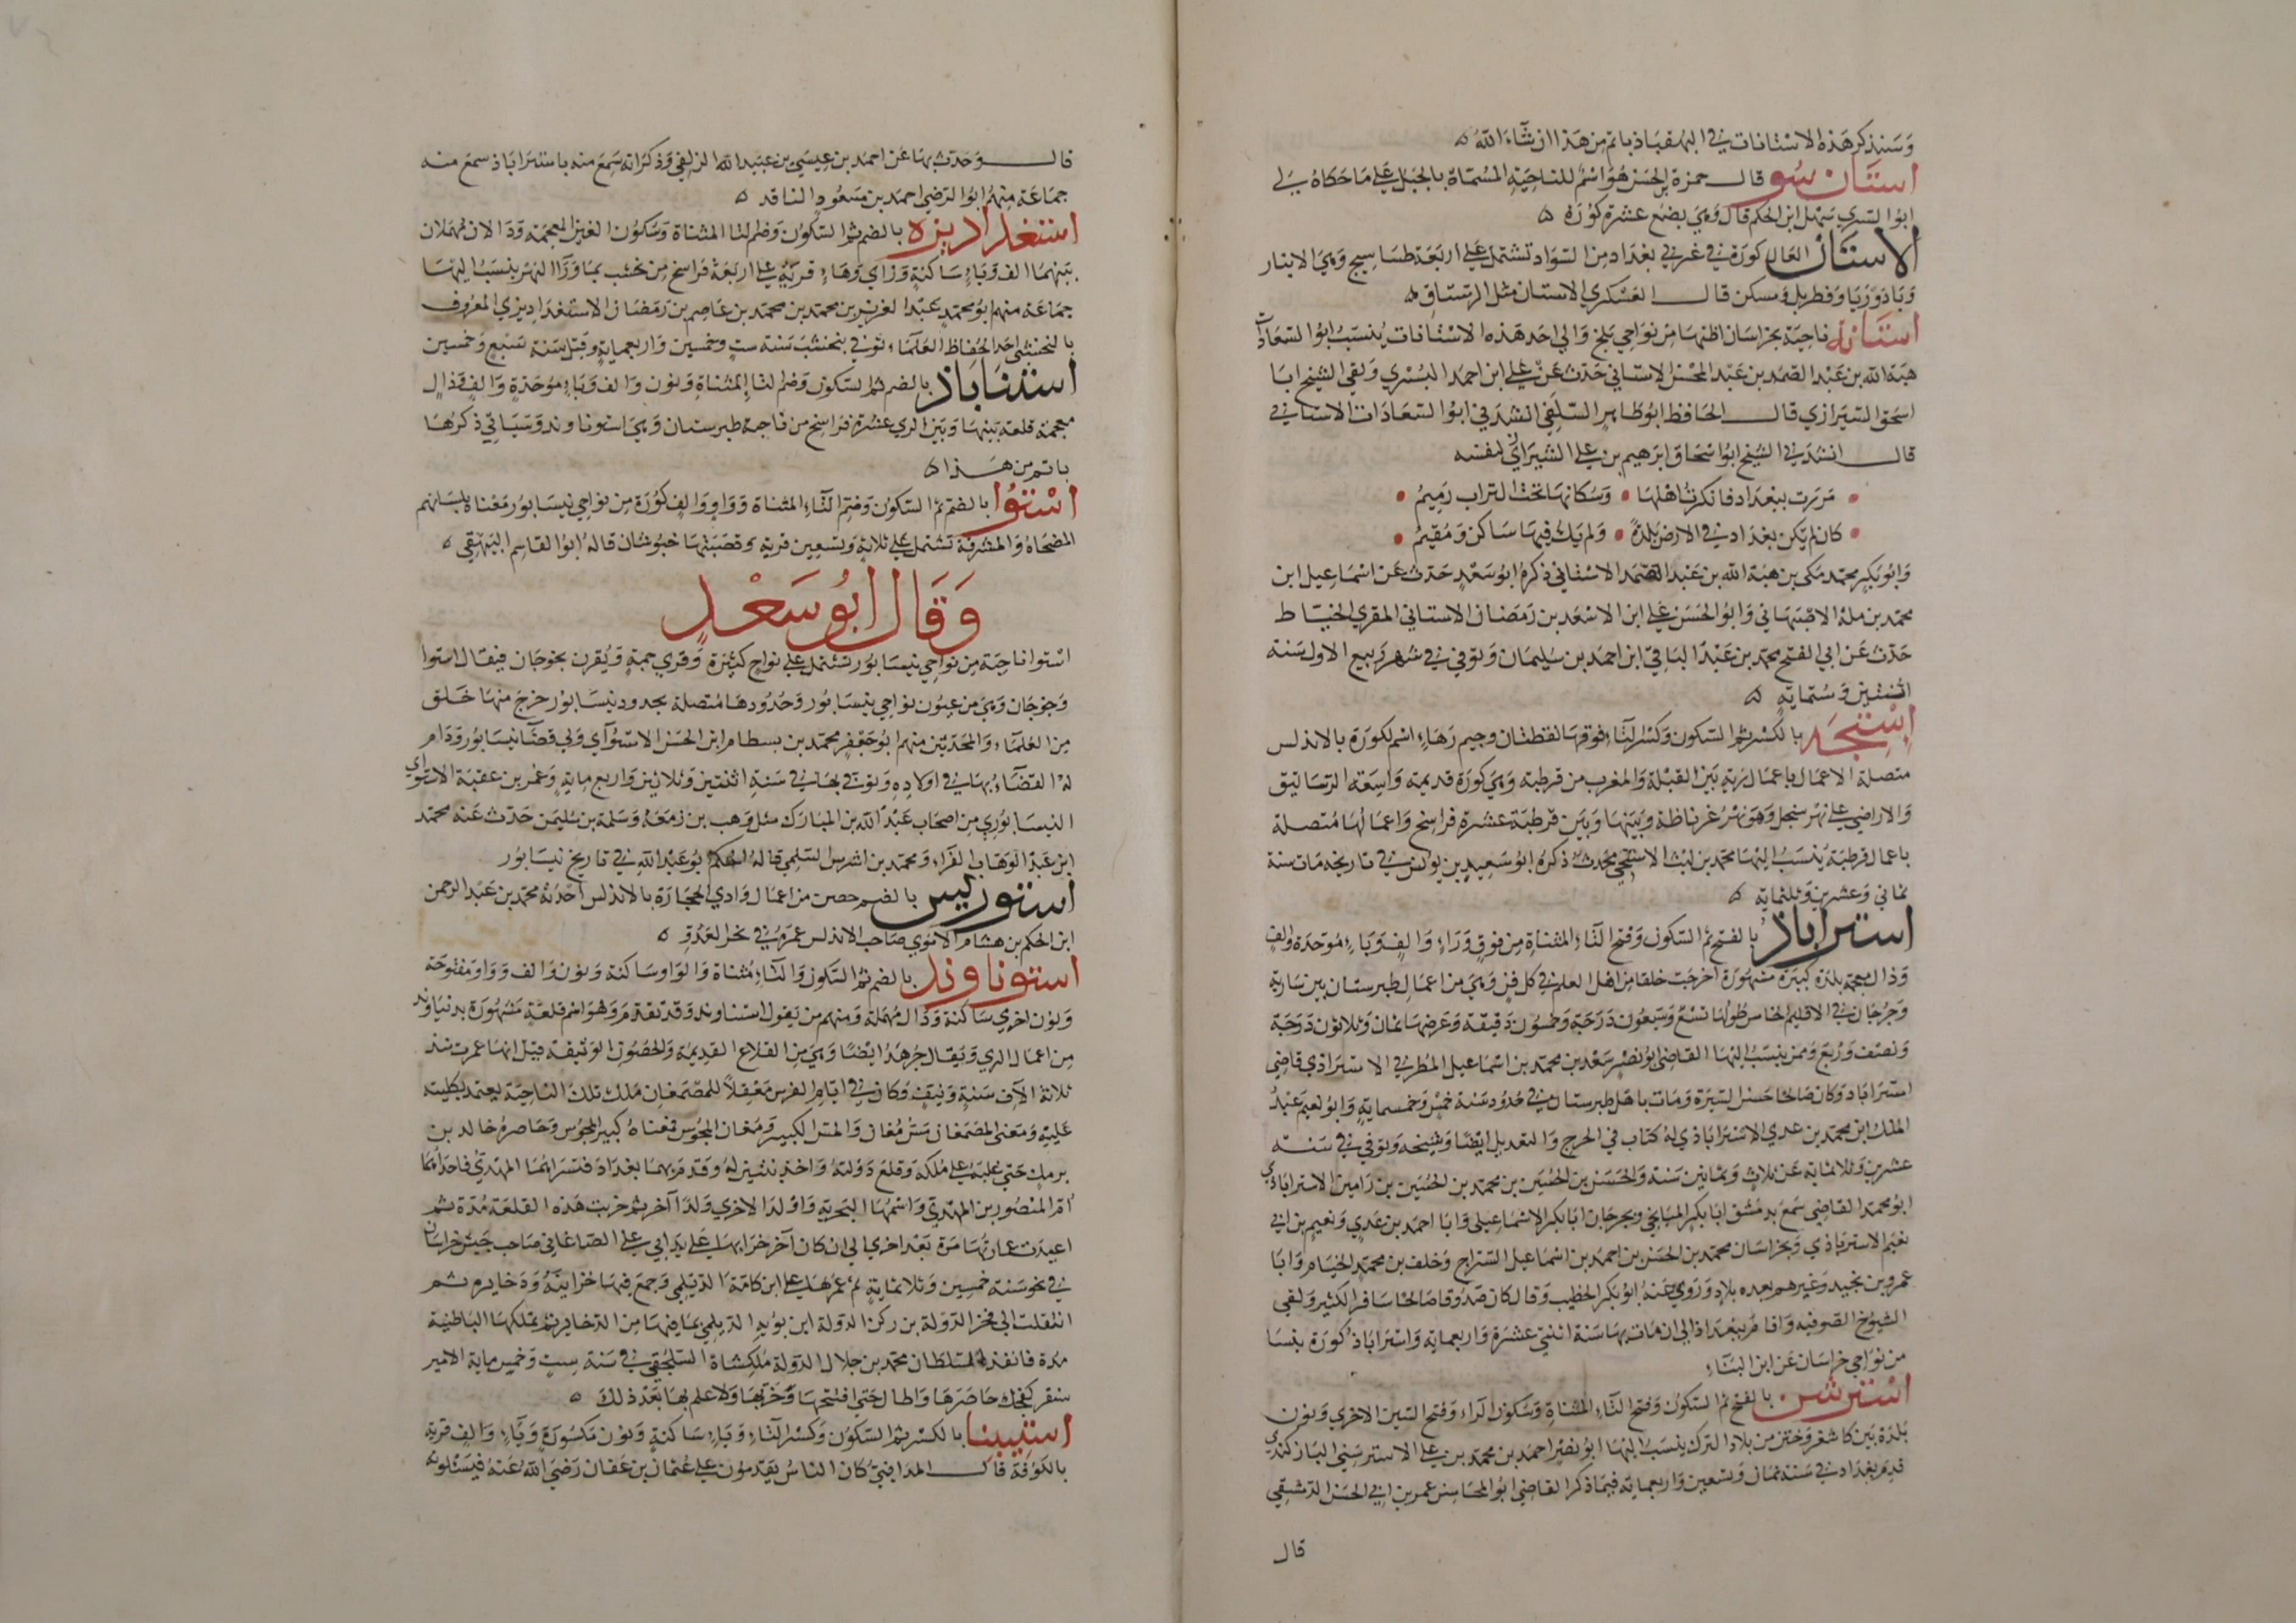 وَسَنذكر هَذه الاستانات في البهقباذ باتم من هَذا ان شآء الله ه
استَان سُو قال حمزة بن الحسَن هُوَ اسْم للنَاحِيَة المُسَمَّاة بالجَبل عَلي مَا حَكاهُ لِي
ابوُا السَّرِي سَهْل ابن الحكم قال وَهِيَ بضع عشرة كوُرَة ه
الاستَان العَال كورَة في غربي بغدَاد مِن السَّوَاد تشتمل عَلي اربَعَة طسَاسِيج وَهِيَ الانبَار
وَبَادُوريَا وَقطربل وَمسكن قال العَسْكري الاستان مثل الرستَاق ه
استَانة نَاحِيَة بخراسَان اظنهَا مِن نوَاحِي بَلخ وَالي احَد هَذه الاستَانات يُنسَبُ ابوُا السَّعَادَات
هبَة الله بن عَبْد الصمَد بن عَبْد المحْسن الاستَاني حَدّث عَنْ عَلي ابن احمَد البُسْري وَلقي الشيخ ابَا
اسحَق الشيرَازي قال الحَافظ ابوُ طَاهِر السّلَفي انشدَني ابوُا السّعَادَات الاستَاني
قال انشدَني الشيخ ابوُ اسْحَاق ابرَهِيم بن عَلي الشيرَازي لنفسه
مَرَرت ببغدَاد فانكرتُ اهْلهَا • وَسُكانهَا تحت التراب رَمِيمُ
كان لم يَكن بغدَاد في الارض بَلدَةً • وَلم يَكُ فيهَا سَاكن وَمُقيمُ
وَابوُ بَكر محمّد مكي بن هبَة الله بن عَبْد الصّمَد الاستَاني ذكرهُ ابوُ سَعْد حَدّث عَن اسْمَاعِيل ابن
محمّد بن ملة الاصْبَهَاني وَابوُ الحَسَن عَلي ابن الاسْعَد بن رَمَضَان الاستَاني المقري الخيّاط
حَدّث عَن ابي الفتح محمّد بن عَبْد البَاقي ابن احمَد بن سُليمَان وَتوفي في شهر رَبيع الاول سَنة
اثنتين وَستمَاية ه
اِستِجَه بالكسْر ثمّ السّكون وَكسْر التّاء فوقهَا نقطتان وجيم وَهَاء اسْم لكوُرَة بالاندلس
متصلة الاعمَال باعمَال رَيّة بَيْن القبْلة وَالمغرب من قرطبة وَهيَ كوُرَة قديمة وَاسِعَة الرسَاتيق
وَالاراضي عَلي نهْر سنجل وَهوَ نهْر غرناطة وَبَينهَا وَبَيْن قرطبَة عشرة فراسخ وَاعمَالهَا مُتصلة
باعمال قرطبَة يُنسَبُ اليْهَا محمّد بن ليْث الاستجي محَدث ذكرهُ ابوُ سَعِيد بن يونس في تاريخه مَات سنة
ثماني وَعشرين وَثلثمَاية ه
استراباذ بالفتح ثمّ السّكون وَفتح التّاء المثنَاة مِن فوق وَرَاء وَالف وَبَاء مُوَحّدَة والف
وَذال مُعجمة بلدَة كبيرَة مَشهوُرَة اخرجَت خلقا من اهل العلم في كل فن وَهيَ من اعمَال طبرستان بين سَارية
وَجُرْجَان في الاقليم الخامس طولهَا تسْعٌ وَسَبْعُون دَرَجَة وَخمْسُون دَقيقة وَعَرضهَا ثمان وَثلاثون دَرَجَة
وَنصْف وَرُبْع وَممّن ينسَبُ اليْهَا القاضي ابوُ نصْر سَعْد بن محمّد بن اسْمَاعيل المُطرفي الاستراباذي قاضي
استراباذ وَكان صَالحا حسَن السّيرَة وَمَات باهل طبرستان في حُدُود سَنة خمسٍ وَخمسماية وَابوُ نعيم عَبْدُ
الملك ابن محمّد بن عدي الاسْترَاباذي لهُ كتاب في الجرح وَالتعديل ايْضًا وَشيخه وَتوفي في سَنة
عشرين وَثلاثماية عَن ثلاث وَثمانين سَنة وَالحسَين بن الحُسَين بن محمّد بن الحُسَين بن رَامين الاستراباذي
ابوُ محمّد القاضي سَمعَ بدمَشق ابابكر الميَانجي وَبجرجَان ابابكر الاسْمَاعيلي وَابا احمَد بن عَدي وَنعيم بن ابي
نعيْم الاسترباذي وَبخراسَان محمّد بن الحَسَن بن احمَد بن اسمَاعيل السّراج وَخلف بن محمّد الخيام وَابَا
عمرو بن نجيد وَغيرهم بعده بلاد وَرَوي عَنهُ ابوُ بكر الخطيب وَقال كان صَدُوقا صَالحا سَافر الكثير وَلقي
الشيوُخ الصّوفية وَاقامَ ببغدَاذ الي ان مَات بهَا سَنة اثنتي عشرَة وَاربعماية وَاستراباذ كورَة بنسَا
من نوَاحي خراسَان عَن ابن البنّاء
استرسن بالفتح ثمّ السّكون وَفتح التّاء المثنَاة وَسكون الرّاء وَفتح السّين الاخري وَنون
بلدَة بَيْن كاشغر وَختن من بلاد الترك ينسَبُ اليْهَا ابوُ نصْر احمَد بن محمّد بن عَلي الاسترسَني البَازكندي
قدم بغدَاد في سَنة ثمان وَتسْعِين وَاربعماية فيمَا ذكر القاضي ابوُا المحاسن عمر بن ابي الحسَن الدّمشقي
قال
قال وَحَدّث بهَا عَن احمَد بن عيسَي بن عبَيد الله الزلفي وَذكر انه سَمعَ منه باستراباذ سمعَ منه
جمَاعَة منهمُ ابوُا الرّضي احمَد بن مَسعُود الناقد ه
استغداديزه بالضم ثمّ السّكون وَضم التا المثناة وَسكوُن الغين المعجمَة وَدَالان مُهملان
بَينهمَا الف وَيَاء سَاكنة وَزاي وَهَاء قريَة عَلي اربَعَة فرَاسخ من نخشب بمَا وَرآ النهْر ينسَبُ اليْهَا
جمَاعَة منهم ابوُ محمّد عَبْد العزيز بن محمّد بن محمّد بن عَاصم بن رَمَضَان الاستغدَاديزي المعْرُوف
بالنخشبي احَد الحُفاظ العُلمَاء توفي بنخشب سَنة ستٍ وخمسين وَاربعماية وَقيل سَنة سَبْعٍ وَخمسين
استناباذ بالضم ثمّ السّكون وَضم التاء المثناة وَنون وَالف وَبَاء مُوَحّدَة وَالف وَذال
معجمة قلعَة بَينهَا وَبَين الري عشرة فرَاسخ من ناحية طبرستان وَهيَ استوناوند وَسَيَاتي ذكرُهَا
باتم من هَذا ه
استُوا بالضم ثمّ السّكون وَضم التّاء المثناة وَوَاو وَالف كوُرَة من نوَاحي نيسَابوُر مَعْناهُ بلسَانهم
المضحَاة وَالمشرقة تشتمل عَلي ثلاثةٍ وَتسعين قرية وَقصَبتهَا خبُوشان قالهُ ابوُا القاسم البَيْهَقي ه
وَقَال ابُو سَعْدٍ
اسْتوا ناحيَة من نوَاحي نيسَابوُر تشتمل عَلي نوَاحٍ كثيرَة وَقري جمّة وَيُقرن بخوجَان فيقال استوا
وَخوجَان وَهيَ من عيُون نوَاحي نيسَابوُر وَحُدُودهَا مُتصلة بحدود نيسَابوُر خرج منهَا خَلق
مِن العُلمَاء وَالمحَدّثين منهم ابوُ جَعْفر محمّد بن بسطام ابن الحسَن الاستوُآي وَلي قضآ نيسَابوُر وَدَام
لهُ القضَاءُ بهَا في اولاده وَتوفي بهَا في سَنة اثنتين وَثلاثين وَاربع ماية وَعُمر بن عقبَة الاستوَاي
النيسَابوُري من اصحَاب عَبْد الله بن المبَارك مثل وَهب بن زمعَة وَسَلمة بن سُليمَن حَدّث عَنهُ محمّد
ابن عَبْد الوَهَاب الفرّاء وَمحمّد بن اشرس السّلمي قالهُ الحَاكم ابوُ عَبْد الله في تاريخ نيسَابوُر
استوريس بالضم حصن من اعمَال وَادي الحجَارَة بالاندلس احْدَثهُ محمّد بن عَبْد الرحمن
ابن الحكم بن هشام الامَوي صَاحب الاندلس عمرَهُ في نحر العَدُو ه
استوناوند بالضم ثمّ السّكون وَالتّاء مُثناة وَالوَاو سَاكنة وَنون وَالف وَوَاو مَفتوحَة
وَنون اخري سَاكنة وَدَال مُهْمَلة وَمنهم من يَقول استناوند وَقد تقدّم وَهوَ اسْم قلعَة مَشهوُرَة بدنباوند
مِن اعمَال الري وَيُقال جُرهُد ايْضًا وَهيَ من القلاع القديمَة وَالحصُون الوَثيقة قيْل انهَا عمرت منذ
ثلاثة الآف سَنة وَنيّف وَكان في ايّام الفرس مَعْقلاً للمصْمَغان مَلك تلك النّاحيَة يعتمد بكليته
عَليْه وَمَعْنى المصْمَغان مَسْ مُغان وَالمسّ الكبير وَمُغان المجُوس فمَعْناهُ كبير المجُوس وَحَاصرهُ خالد بن
برمك حَتي غلبَهُ عَلي مُلكه وَقلعَ دَوْلتهُ وَاخذ بنتين لهُ وَقدمَ بهمَا بغدَادَ فتسَرّاهُمَا المهْديّ فاحدَاهُمَا
اُم المنصُور بن المهْديّ وَاسْمُهَا البَحْريّة وَاوْلدَ الاخري وَلدًا آخر ثمّ خرْبت هَذه القلعَة مُدّة ثمّ
اعيدَت عمارتُهَا مَرة بَعْد اخري الي ان كان آخر خرَابهَا عَلي يَد ابي عَلي الصّاغاني صَاحب جَيش خراسَان
في نحو سَنة خمسين وَثلاثمَاية ثمّ عَمّرهَا عَلي ابن كامَة الدّيلمي وَجمعَ فيهَا خزاينهُ وَذخايره ثم
انتقلت الي فخر الدّوْلة بن ركن الدولة ابن بوُيه الديلمي بمَا فيهَا مِن الذخاير ثمّ تملكهَا البَاطنيّة
مدة فانفذ السّلطان محمّد بن جلال الدّولة مُلكشاة السّلجُقي في سَنة ستٍ وَخمس ماية الامير
سنقر كنجك حَاصَرهَا وَاطال حَتي افتتحهَا وَخرّبهَا وَلا علم لهَا بَعْد ذلك ه
استينيا بالكسْر ثمّ السّكوُن وَكسْر التّاء وَيَاء سَاكنة وَنون مَكسُورَة وَيَاء وَالف قرية
بالكوُفة قال المدايني كان النّاسُ يَقدمُون عَلي عُثمَان بن عَفان رَضيَ اللهُ عَنهُ فيَسْئلونه